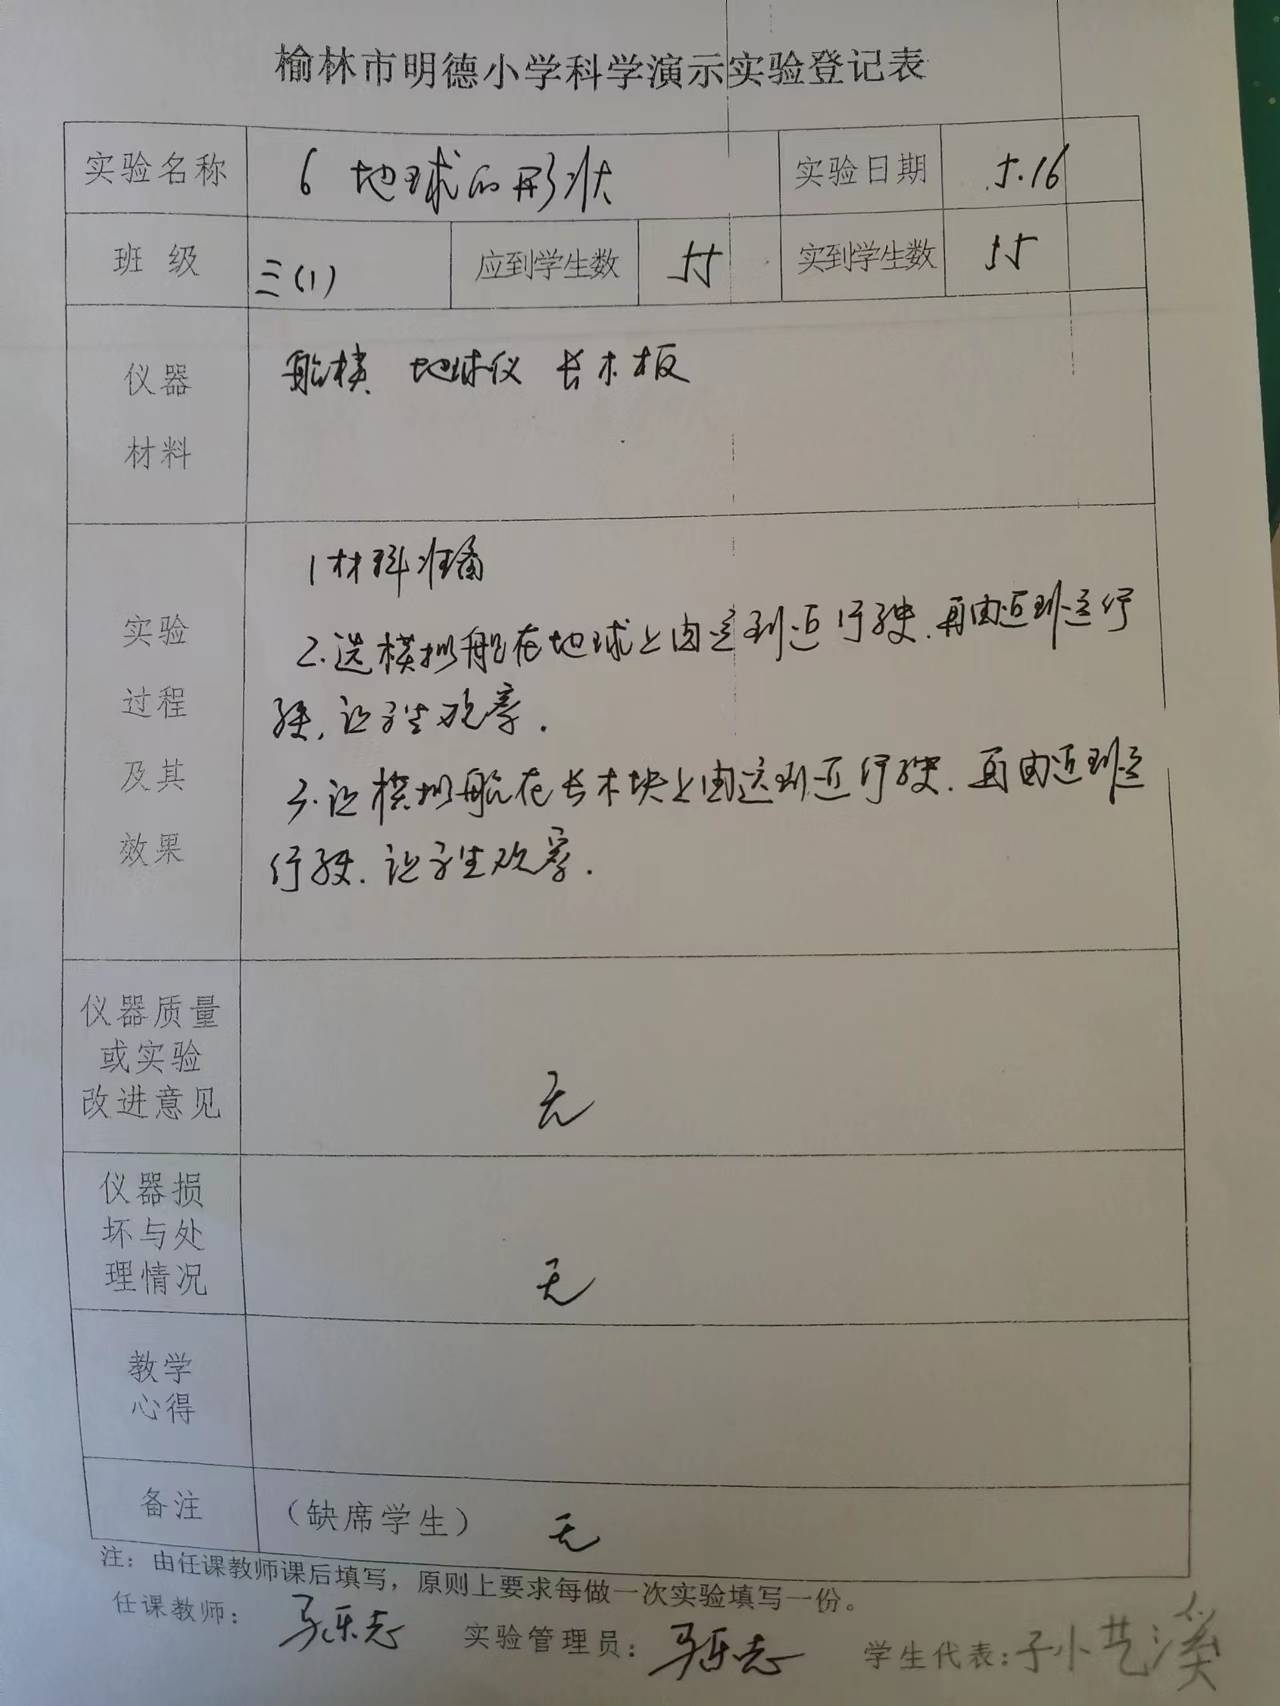 榆林市明德小学科学演示实验登记表
实验名称 6 地球的形状 实验日期 5.16
班级 三(1) 应到学生数 55 实到学生数 55
仪器 船模 地球仪 长木板
材料
1材料准备
实验 2.选模拟船在地球上由远到近行驶.再由近到远行
过程 驶,让学生观察.
及其 3.让模拟船在长木块上由远到近行驶.再由近到远
效果 行驶.让学生观察.
仪器质量
或实验
改进意见 无
仪器损
坏与处
理情况 无
教学
心得
备注 (缺席学生) 无
注：由任课教师课后填写，原则上要求每做一次实验填写一份。
任课教师： 实验管理员： 学生代表：